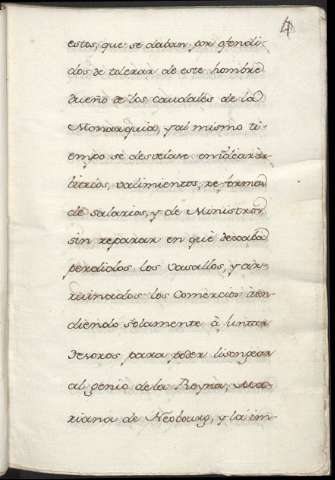 4
estos, que se daban por ofendi-
dos de tolerar de este hombre
dueño de los caudales de la
Monarquia, y al mismo ti-
empo se desvelava en
bitrios, valimientos, reforma
de salarios, y de Ministros,
sin reparar en que
perdidos los Vasallos, y ar-
ruinados los Comercios aten-
diendo solamente à juntar
tesoros para poder lisongear
al genio de la Reyna, Ma-
riana de Neoburg, y la am-